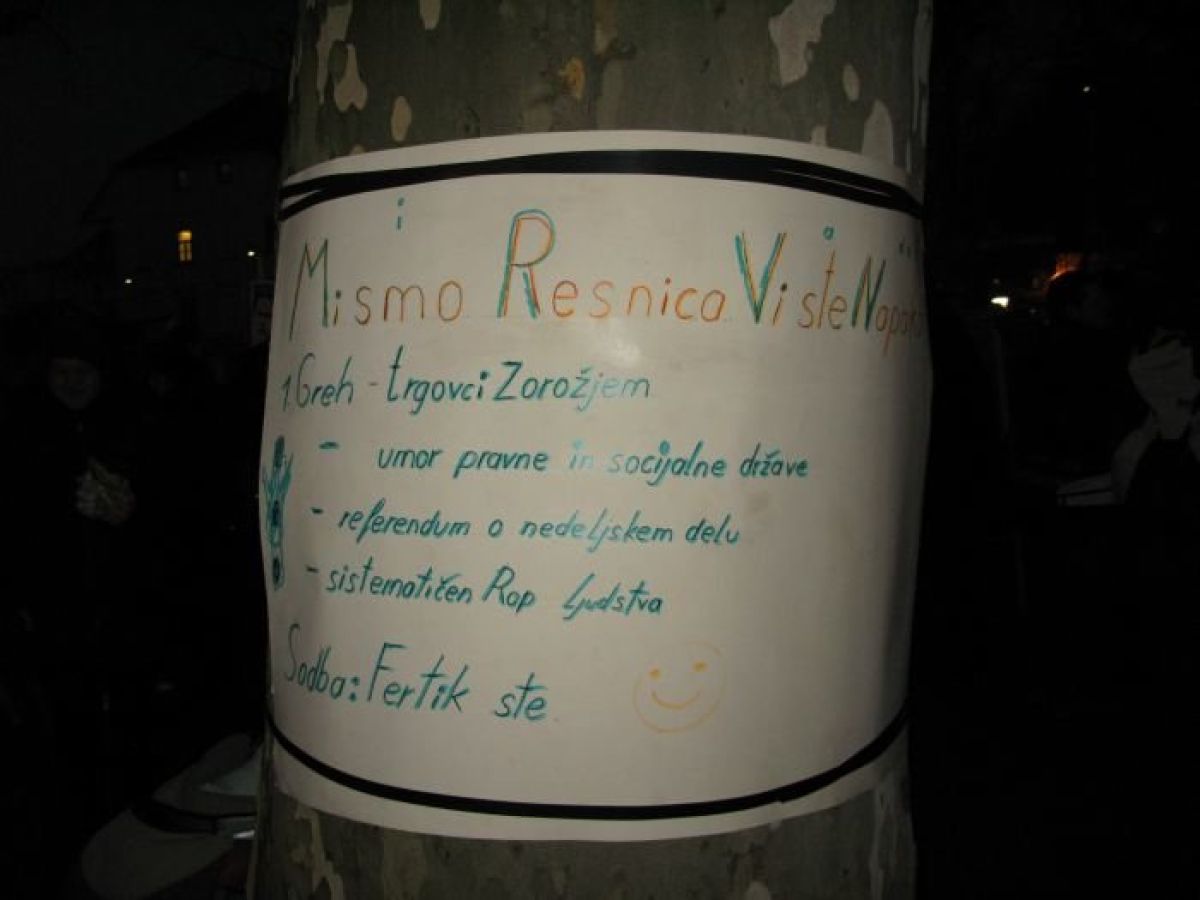 Mismo Resnica Vi ste
1. Greh - trgovci Z orožjem
- umor pravne in socijalne države
- referendum o nedeljskem delu
- sistematičen Rop Ljudstva
Sodba: Fertik ste